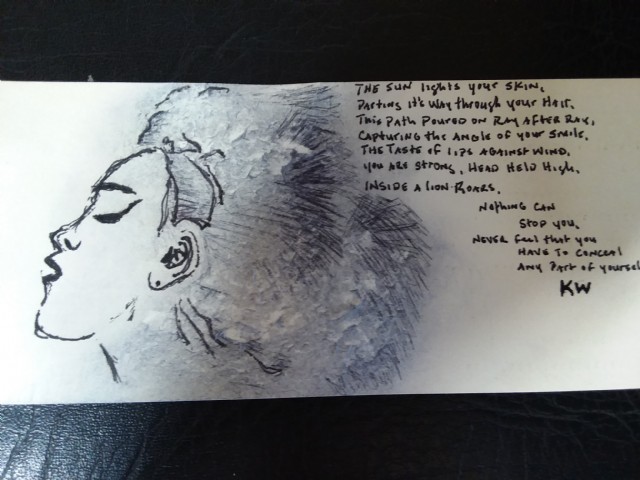 THE SUN lights your SKIN,
Parting it's way through your Hair.
This Path Poured on Ray After Ray,
Capturing the Angle of your Smile.
THE TASTE of lips AGAINST WIND,
you ARE STRONG, HEAD HELD HIGH,
INSIDE A lION ROARS.
NOTHING CAN
STOP you.
NEVER feel that you
HAVE TO CONCEAL
ANY PART of yourself
KW